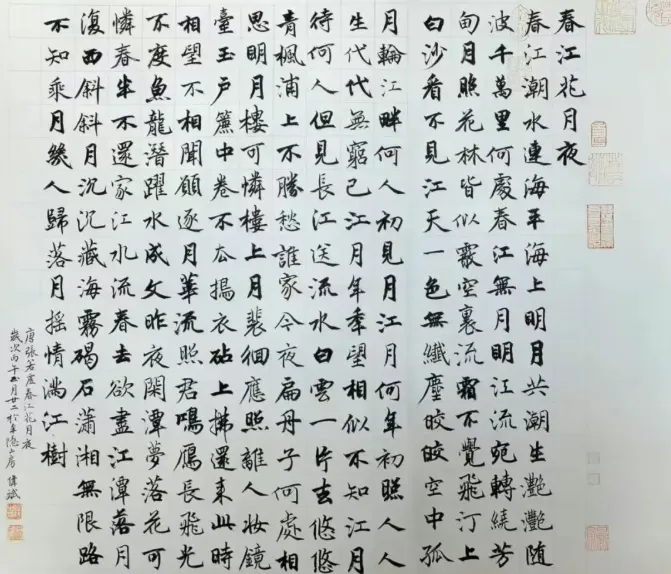 春江花月夜
春江潮水連海平海上明月共潮生灧灧随
波千萬里何處春江無月明江流宛轉繞芳
甸月照花林皆似霰空裏流霜不覺飛汀上
白沙看不見江天一色無纖塵皎皎空中孤
月輪江畔何人初見月江月何年初照人人
生代代無窮已江月年年望相似不知江月
待何人但見長江送流水白雲一片去悠悠
青楓浦上不勝愁誰家今夜扁舟子何處相
思明月樓可憐樓上月裴徊應照離人妝鏡
臺玉戶簾中卷不去搗衣砧上拂還來此時
相望不相聞願逐月華流照君鴻鴈長飛光
不度魚龍潛躍水成文昨夜閑潭夢落花可
憐春半不還家江水流春去欲盡江潭落月
復西斜斜月沉沉藏海霧碣石瀟湘無限路
不知乘月幾人歸落月搖情滿江樹
唐張若虛春江花月夜
歲次丙午正月廿二於隱山房 偉斌